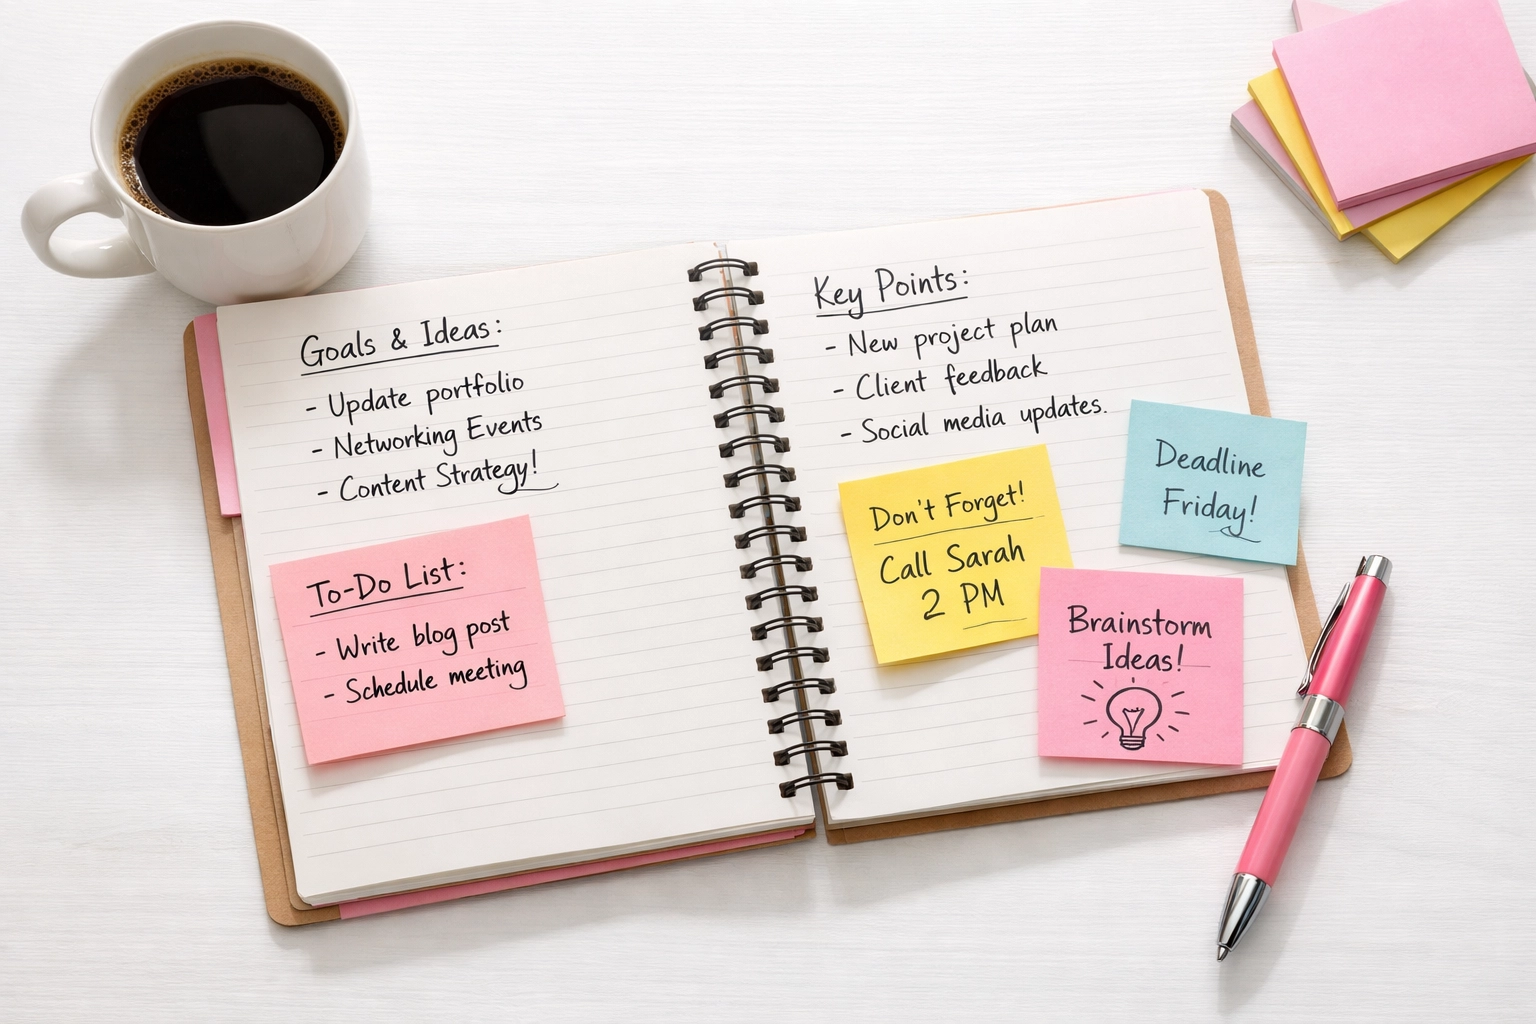 Goals & Ideas:
- Update portfolio
- Networking Events
- Content Strategy!
To-Do List:
- Write blog post
- Schedule meeting
Key Points:
- New project plan
- Client feedback
- Social media updates.
Don't Forget!
Call Sarah
2 PM
Deadline
Friday!
Brainstorm
Ideas!